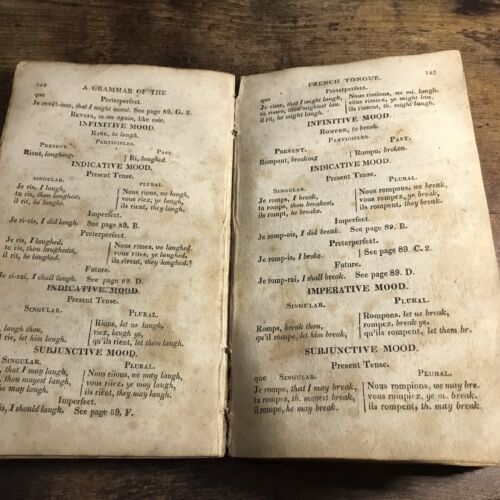 142
A GRAMMAR OF THE
Preterperfect.
que
Je revêt-isse, that I might invest. See page 89. G. 2.
Revoir, to see again, like voir.
INFINITIVE MOOD.
Rire, to laugh.
Participles.
Present. Past.
Riant, laughing. Ri, laughed.
INDICATIVE MOOD.
Present Tense.
SINGULAR. PLURAL.
Je ris, I laugh, Nous rions, we laugh,
tu ris, thou laughest, vous riez, ye laugh,
il rit, he laughs. ils rient, they laugh.
Imperfect.
Je ri-ois, I did laugh. See page 89. B.
Preterperfect.
Je ris, I laughed. Nous rimes, we laughed.
tu ris, thou laughedst, vous rites, ye laughed,
il rit, he laughed. ils rirent, they laughed.
Future.
Je ri-rai, I shall laugh. See page 89. D.
INDICATIVE MOOD.
Present Tense.
Singular. Plural.
Rions, let us laugh,
laugh thou, riez, laugh ye,
rie, let him laugh. qu'ils rient, let them laugh.
SUBJUNCTIVE MOOD.
Singular. Plural.
that I may laugh, Nous riions, we may laugh,
thou mayest laugh, vous riiez, ye may laugh,
he may laugh. ils rient, they may laugh.
Imperfect.
I should laugh. See page 89, F.
FRENCH TONGUE.
143
Preterperfect.
que
Je risse, that I might laugh, Nous rissions, we mi. laugh,
tu risses, thou mightest lau. vous rissiez, ye might lau.
il rit, he might laugh. ils rissent, th. might laugh.
INFINITIVE MOOD.
Rompre, to break.
Participles.
Present, Past,
Rompant, breaking Rompu, broken.
INDICATIVE MOOD.
Present Tense.
Singular. Plural.
Je romps, I break, Nous rompons, we break,
tu romps, thou breakest, vous rompez, ye break,
il rompt, he breaks. ils rompent, they break.
Imperfect.
Je romp-ois, I did break. See page 89. B.
Preterperfect.
Je romp-is, I broke. See page 89. C. 2.
Future.
Je romp-rai, I shall break. See page 89. D.
IMPERATIVE MOOD.
Singular. Plural.
Rompons, let us break,
Romps, break thou, rompez, break ye,
qu'il rompe, let him break, qu'ils rompent, let them br.
SUBJUNCTIVE MOOD.
Present Tense.
que Singular. Plural.
Je rompe, that I may break, Nous rompions, we may bre.
tu rompes, th. mayest break, vous rompiez, ye m. break.
il rompe, he may break. ils rompent, th. may break.